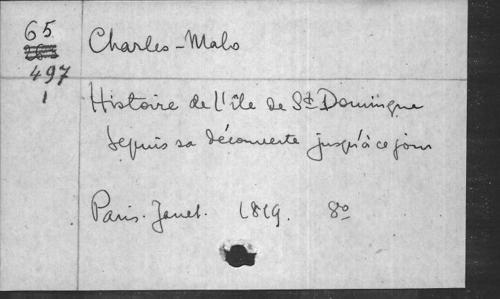 65
497
1
Charles-Malo
Histoire de l'île de St Domingue
depuis sa découverte jusqu'à ce jour
Paris. Janet. 1819. 8o